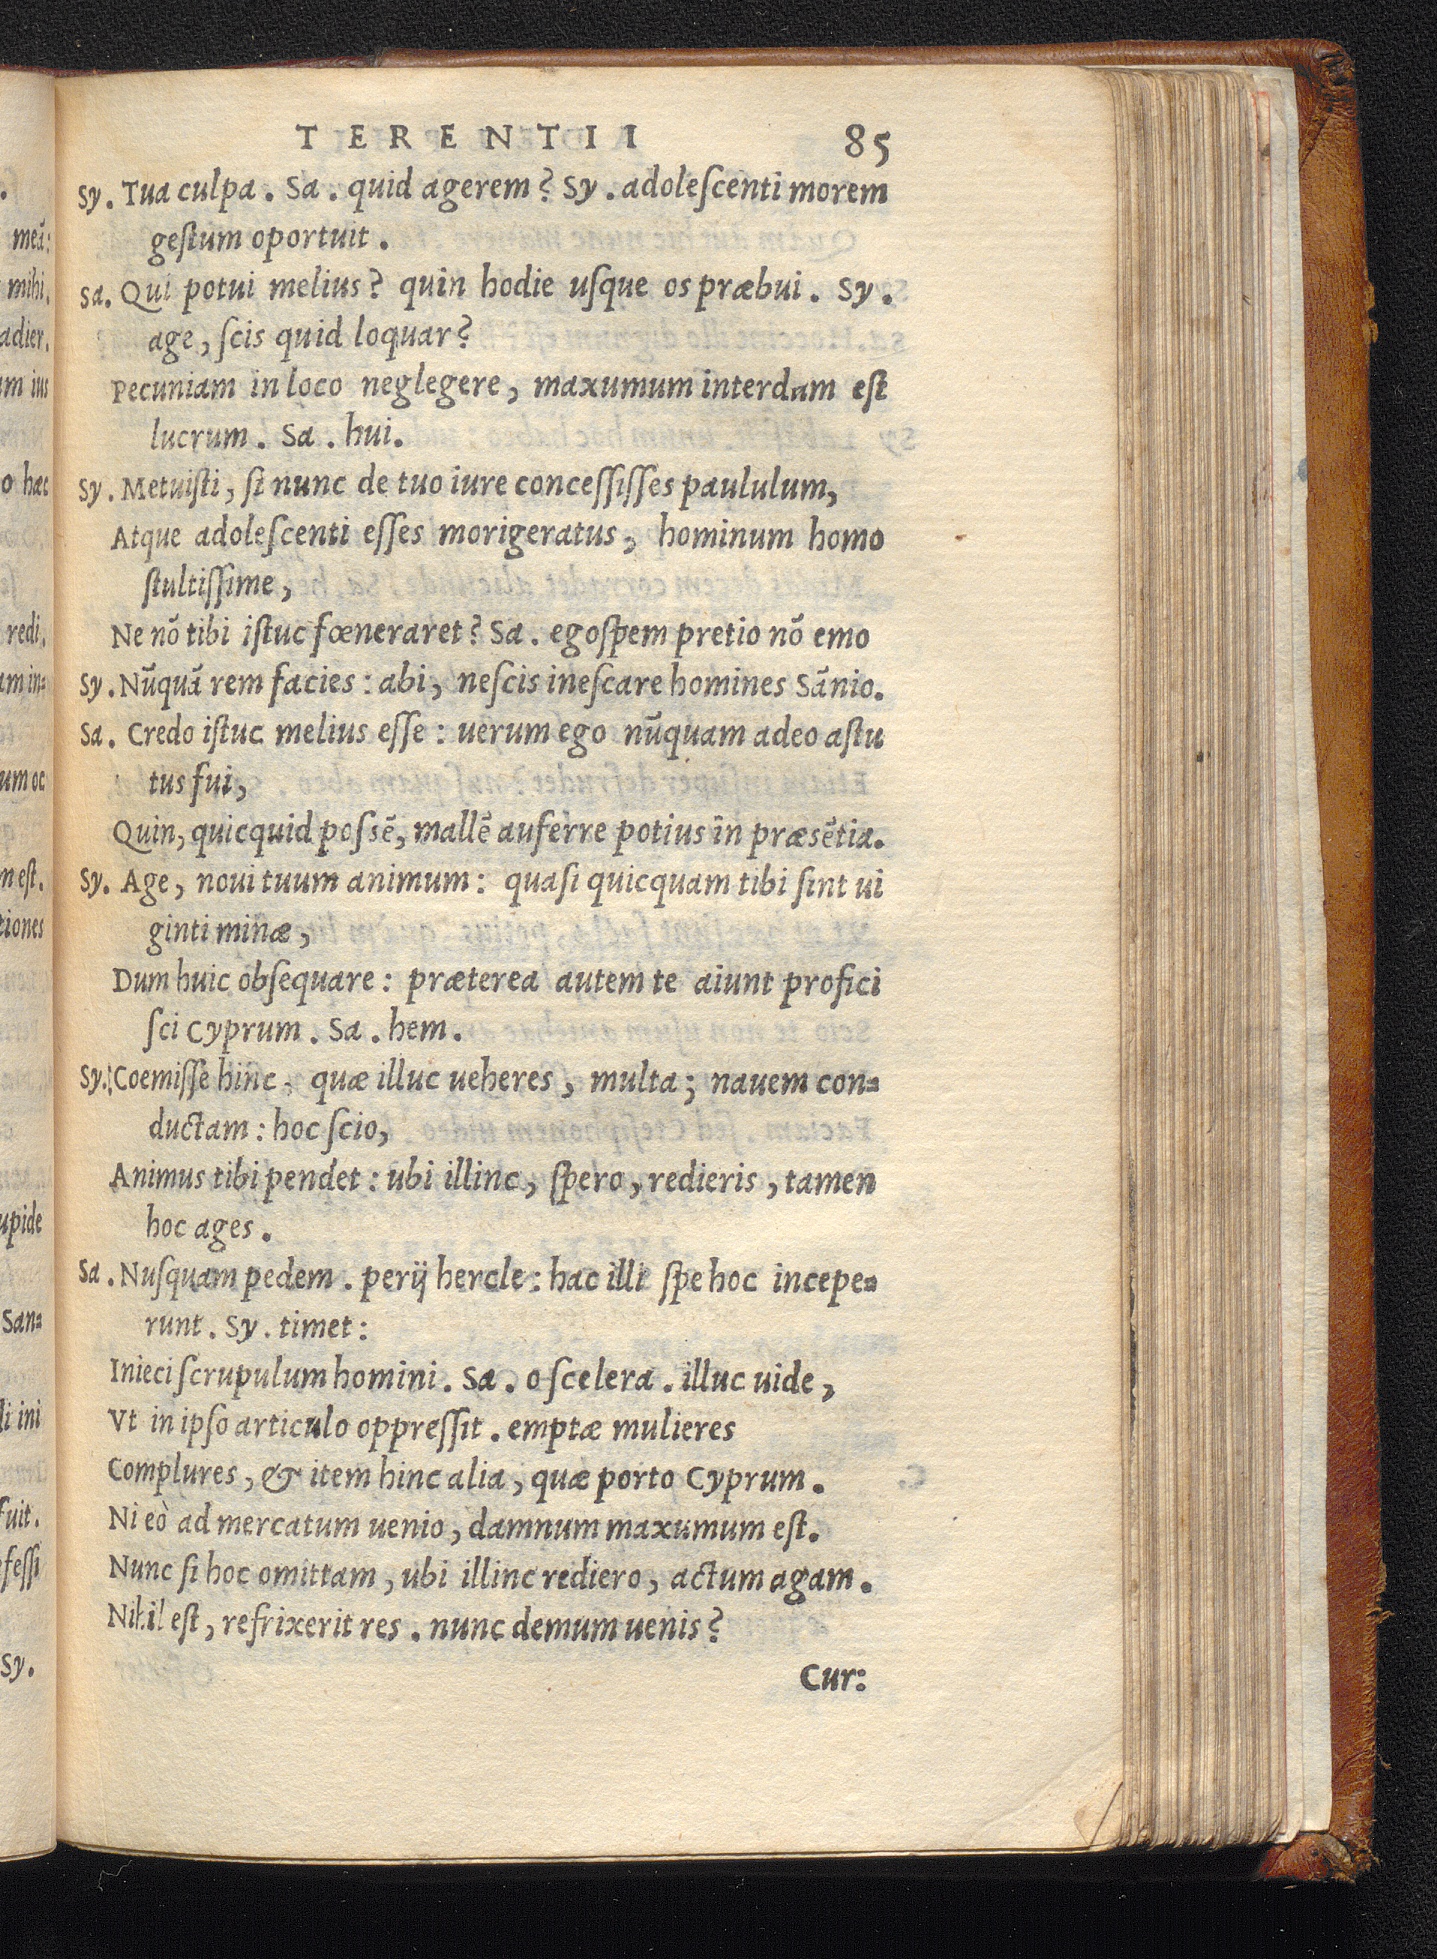 TERENTII 85
Sy. Tua culpa. Sa. quid agerem? Sy. adoleſcenti morem
geſtum oportuit.
Sa. Qui potui melius? quin hodie uſque os præbui. Sy.
age, ſcis quid loquar?
Pecuniam in loco neglegere, maxumum interdum eſt
lucrum. Sa. hui.
Sy. Metuiſti, ſi nunc de tuo iure conceſſiſſes paululum,
Atque adoleſcenti eſſes morigeratus, hominum homo
ſtultiſſime,
Ne nõ tibi iſtuc fœneraret? Sa. ego ſpem pretio nõ emo
Sy. Nũquã rem facies: abi, neſcis ineſcare homines Sãnio.
Sa. Credo iſtuc melius eſſe: uerum ego nũquam adeo aſtu
tus fui,
Quin, quicquid poſsẽ, mallẽ auferre potius in præsẽtia.
Sy. Age, noui tuum animum: quaſi quicquam tibi ſint ui
ginti minæ,
Dum huic obſequare: præterea autem te aiunt profici
ſci Cyprum. Sa. hem.
Sy. Coemiſſe hinc, quæ illuc ueheres, multa; nauem con=
ductam: hoc ſcio,
Animus tibi pendet: ubi illinc, ſpero, redieris, tamen
hoc ages.
Sa. Nuſquam pedem. perij hercle: hac illi ſpe hoc incepe=
runt. Sy. timet:
Inieci ſcrupulum homini. Sa. o ſcelera. illuc uide,
Vt in ipſo articulo oppreſſit. emptæ mulieres
Complures, & item hinc alia, quæ porto Cyprum.
Ni eò ad mercatum uenio, damnum maxumum eſt.
Nunc ſi hoc omittam, ubi illinc rediero, actum agam.
Nihil eſt, refrixerit res. nunc demum uenis?
Cur: